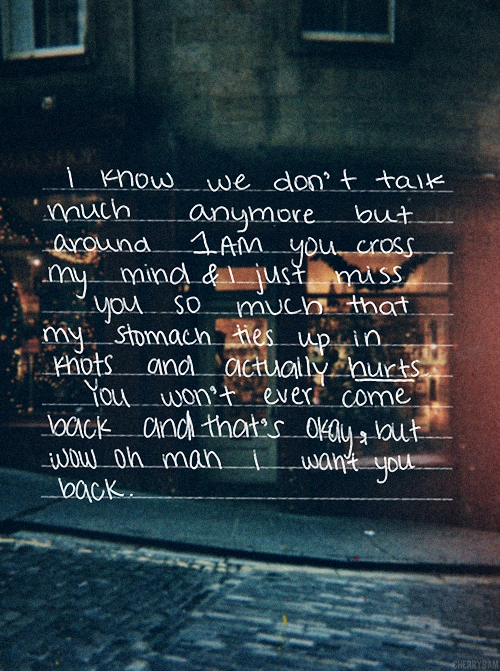 i know we don't talk
much anymore but
around 1AM you cross
my mind & I just miss
you so much that
my stomach ties up in
knots and actually hurts.
You won't ever come
back and that's okay, but
wow oh man i want you
back.